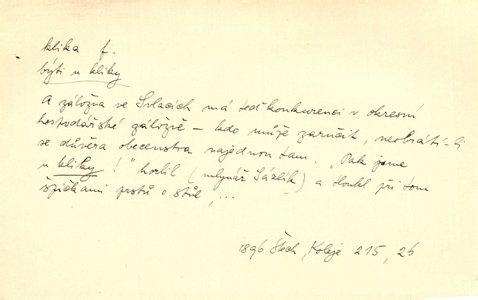 klika f.
býti u kliky
A záložna ve Svlacích má teď konkurenci v okresní
hospodářské záložně – kdo může zaručit, neobrátí-li
se důvěra obecenstva najednou tam. „Pak jsme
u kliky!" horlil (mlynář Sázlík) a tloukl při tom
špičkami prstů o stůl, ...
1896 Štech, Koleje 215, 26